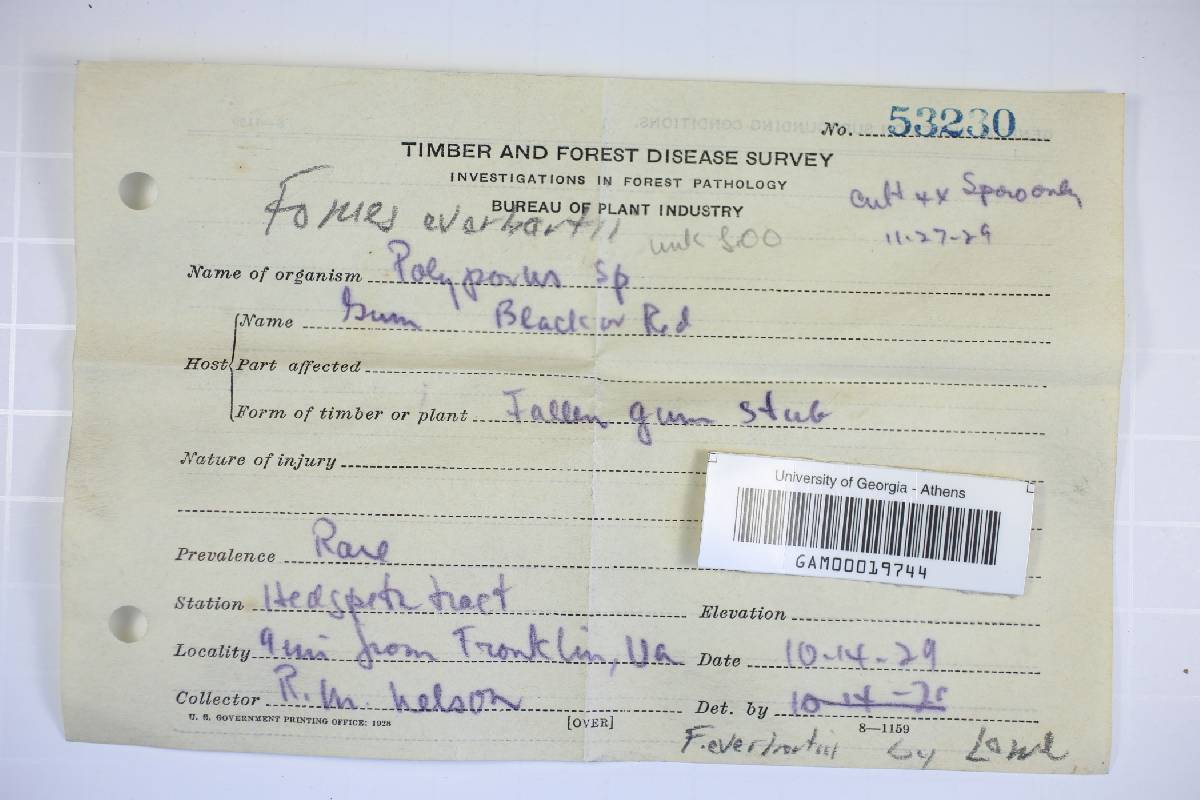 No. 53230
TIMBER AND FOREST DISEASE SURVEY
INVESTIGATIONS IN FOREST PATHOLOGY
BUREAU OF PLANT INDUSTRY
Cult xx Sporo only
11-27-29
Fomes everhartii
Name of organism Polyporus sp
Host
Name Gum Black or Red
Part affected
Form of timber or plant Fallen gum stub
Nature of injury
University of Georgia - Athens
GAM00019744
Prevalence Rare
Station Hedgpeth tract Elevation
Locality 9 mi from Franklin, Va Date 10-14-29
Collector R. M. Nelson Det. by 10-14-29
U. S. GOVERNMENT PRINTING OFFICE: 1928 [OVER] 8—1159
F. everhartii by Lowe